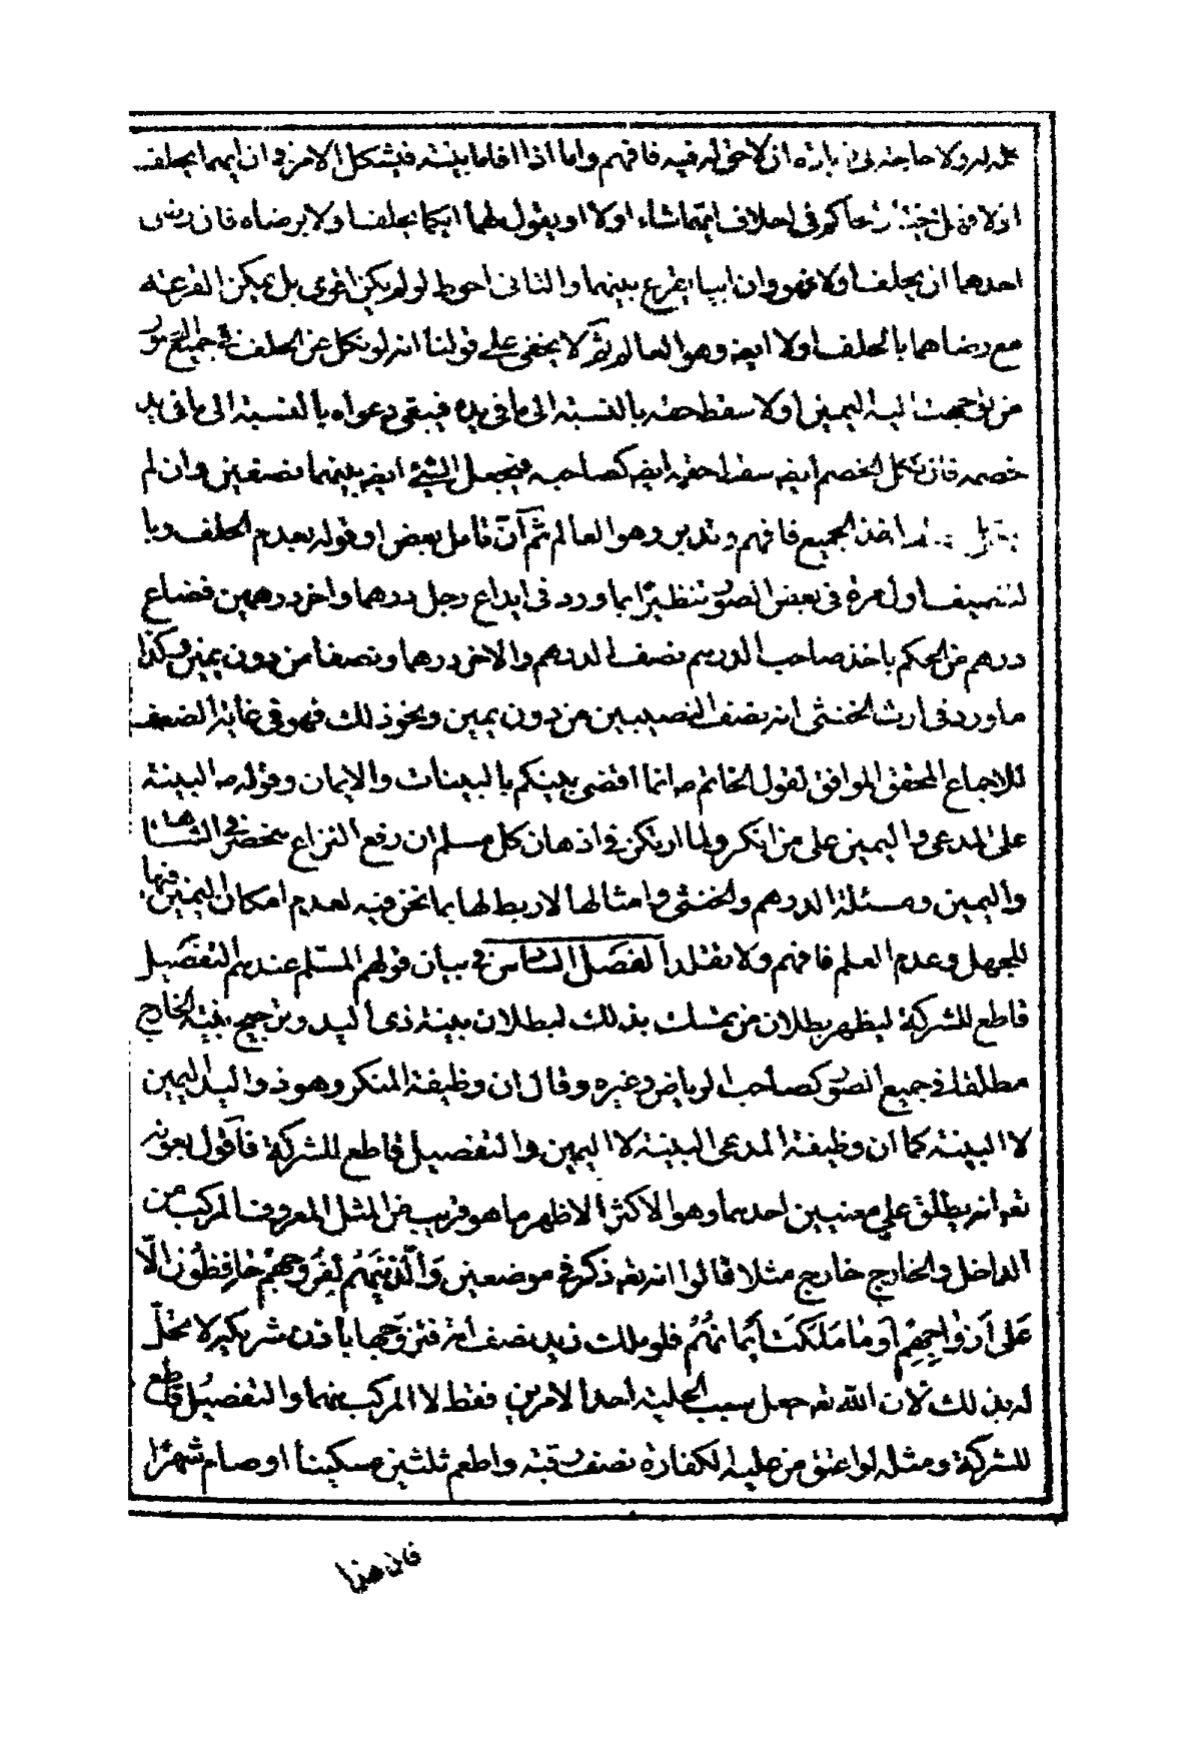 ولا حاجة ان لا حق له فيه فافهم واما اذا اقاما بينته فيشكل الامر فى ان ايهما يحلف
اولا فى احلاف ايتهما شاء اولا او يقول لهما ايكما يحلف اولا برضاه فان رضى
احدهما ان يحلف اولا فهو وان ابيا يقرع بينهما والثانى احوط لو لم يكن اقوى بل يمكن القرعة
مع رضاهما بالحلف اولا ايض وهو العالم ثم لا يخفى على قولنا انه لو نكل عن الحلف فى جميع الصور
من توجهت اليه اليمين اولا سقط حقه بالنسبة الى ما فى يده فيبقى دعواه بالنسبة الى ما فى يد
خصمه فان نكل الخصم ايضه سقط حقه ايضه كصاحبه فيجعل الشئ ايضه بينهما نصفين وان لم
اخذ الجميع فافهم وتدبر وهو العالم ثم آن تامل بعض او قوله بعدم الحلف وبا
لتنصيف او لقرعة فى بعض الصور تنظيرًا بما ورد فى ايداع رجل درهما واخر درهمين فضاع
درهم من الحكم باخذ صاحب الدرهم نصف الدرهم والاخر درهما ونصفا من دون يمين وكذا
ما ورد فى ارث الخنثى انه نصف النصيبين من دون يمين ونحو ذلك فهو فى غاية الضعف
للاجماع المحقق الموافق لقول الخاتم ص انما اقضى بينكم بالبينات والايمان وقوله ص البينة
على المدعى واليمين على من انكر ولما ارتكز فى اذهان كل مسلم ان رفع النزاع منحصر فى الشاهد
واليمين ومسئلة الدرهم والخنثى وامثالها لا ربط لها بما نحن فيه لعدم امكان اليمين فيها
للجهل وعدم العلم فافهم ولا تقلد الفصل السادس فى بيان قولهم المسلم عندهم التفصيل
قاطع للشركة ليظهر بطلان من يتمسك بذلك لبطلان بينة ذى اليد وترجيح بينة الخارج
مطلقا فى جميع الصور كصاحب الرياض وغيره وقال ان وظيفة المنكر وهو ذو اليد اليمين
لا البينة كما ان وظيفة المدعى البينة لا اليمين والتفصيل قاطع للشركة فاقول بعونه
تعه انه يطلق على معنيين احدهما وهو الاكثر الاظهر ما هو قريب من المثل المعروف المركب من
الداخل والخارج خارج مثلا قالوا انه تعه ذكر فى موضعين وَالَّذينَهُمْ لِفُرُوجِهِمْ حٰافِظُونَ اِلّٰا
عَلىٰ اَزْوٰاجِهِمْ اَوْمٰا مَلَكَتْ اَيْمٰانُهُمْ فلو ملك زيد نصف امة فتزوجها باذن شريكه لا تحلّ
له بذلك لان الله تعه جعل سبب الحلية احد الامرين فقط لا المركب منهما والتفصيل قاطع
للشركة ومثله لو اعتق من عليه الكفارة نصف رقبة واطعم ثلثين مسكينا او صام شهرًا
فان هذا